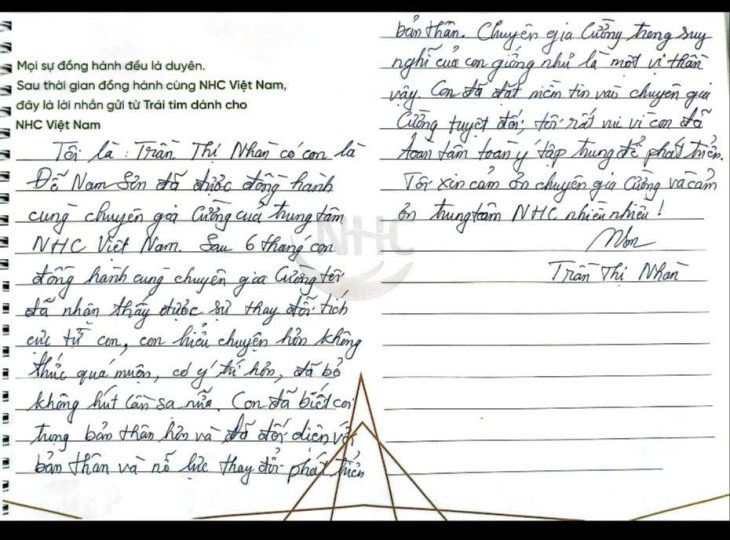 Mọi sự đồng hành đều là duyên.
Sau thời gian đồng hành cùng NHC Việt Nam,
đây là lời nhắn gửi từ Trái tim dành cho
NHC Việt Nam
Tôi là : Trần Thị Nhàn có con là
Đỗ Nam Sơn đã được đồng hành
cùng chuyên gia Cường của trung tâm
NHC Việt Nam. Sau 6 tháng con
đồng hành cùng chuyên gia Cường tôi
đã nhận thấy được sự thay đổi tích
cực từ con, con hiểu chuyện hơn không
thức quá muộn, có ý tứ hơn, đã bỏ
không hút cần sa nữa. Con đã biết coi
trọng bản thân hơn và đã đối diện với
bản thân và nỗ lực thay đổi phát triển
bản thân. Chuyên gia Cường trong suy
nghĩ của con giống như là một vị thần
vậy. Con đã đặt niềm tin vào chuyên gia
Cường tuyệt đối, tôi rất vui vì con đã
toàn tâm toàn ý tập trung để phát triển.
Tôi xin cảm ơn chuyên gia Cường và cảm
ơn trung tâm NHC nhiều nhiều !
Trần Thị Nhàn
NHC